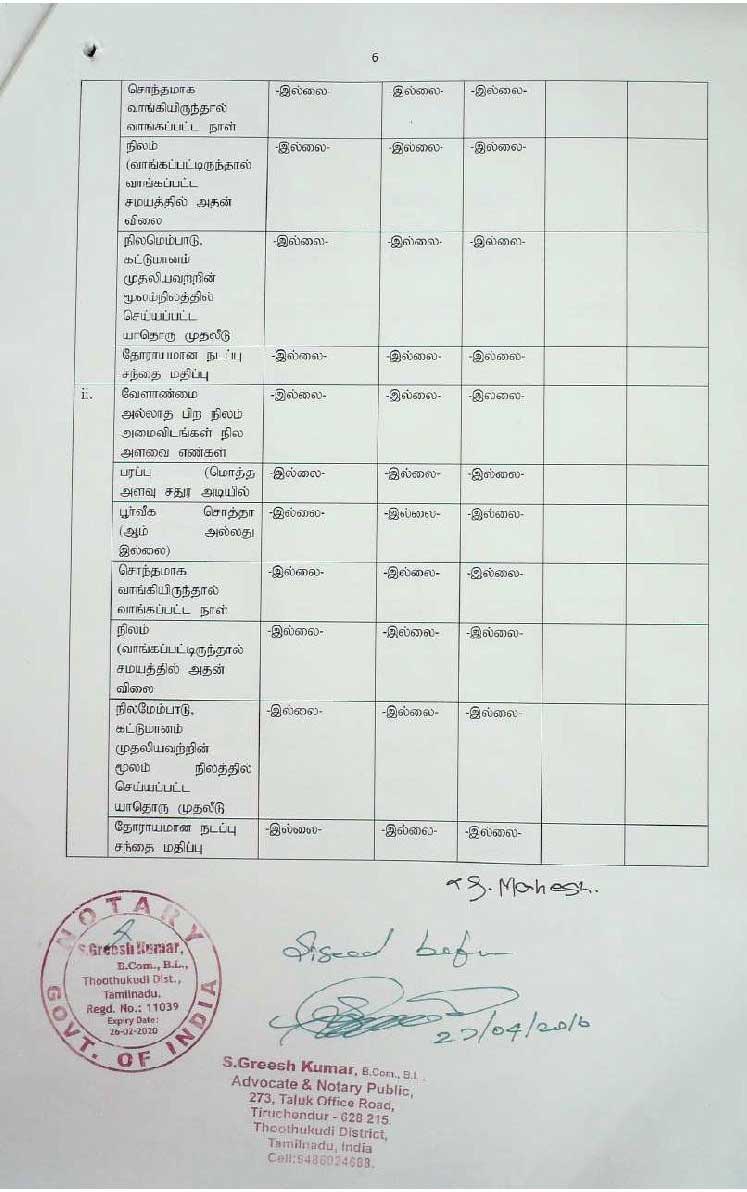 6
சொந்தமாக -இல்லை இல்லை- -இல்லை-
வாங்கியிருந்தால்
வாங்கப்பட்ட நாள்
நிலம் -இல்லை- -இல்லை- -இல்லை-
(வாங்கப்பட்டிருந்தால்
வாங்கப்பட்ட
சமயத்தில் அதன்
விலை
நிலமெம்பாடு. -இல்லை- -இல்லை- -இல்லை-
கட்டுமானம்
முதலியவற்றின்
மூலம்நிலத்தில்
செய்யப்பட்ட
யாதொரு முதலீடு
தோராயமான நடப்பு -இல்லை- -இல்லை- -இல்லை-
சந்தை மதிப்பு
ii. வேளாண்மை -இல்லை- -இல்லை- -இல்லை-
அல்லாத பிற நிலம்
அமைவிடங்கள் நில
அளவை எண்கள்
பரப்ட (மொத்த -இல்லை- -இல்லை- -இல்லை-
அளவு சதுர அடியில்
பூர்வீக சொத்தா -இல்லை- -இல்லை- -இல்லை-
(ஆம் அல்லது
இல்லை)
சொந்தமாக -இல்லை- -இல்லை- -இல்லை-
வாங்கியிருந்தால்
வாங்கப்பட்ட நாள்
நிலம் -இல்லை- -இல்லை- -இல்லை-
(வாங்கப்பட்டிருந்தால்
சமயத்தில் அதன்
விலை
நிலமேம்பாடு. -இல்லை- -இல்லை- -இல்லை-
கட்டுமானம்
முதலியவற்றின்
மூலம் நிலத்தில்
செய்யப்பட்ட
யாதொரு முதலீடு
தோராயமான நடப்பு -இல்லை- -இல்லை- -இல்லை-
சந்தை மதிப்பு
S. Mahesh.
NOTARY
S.Greesh Kumar,
B.Com., B.L.,
Thoothukudi Dist.,
Tamilnadu.
Regd. No.: 11039
Expiry Date:
26-02-2020
GOVT. OF INDIA
Signed before
27/04/2016
S.Greesh Kumar, B.Com., B.L.,
Advocate & Notary Public,
273, Taluk Office Road,
Tiruchendur - 628 215.
Thoothukudi District,
Tamilnadu, India
Cell:9486024683.